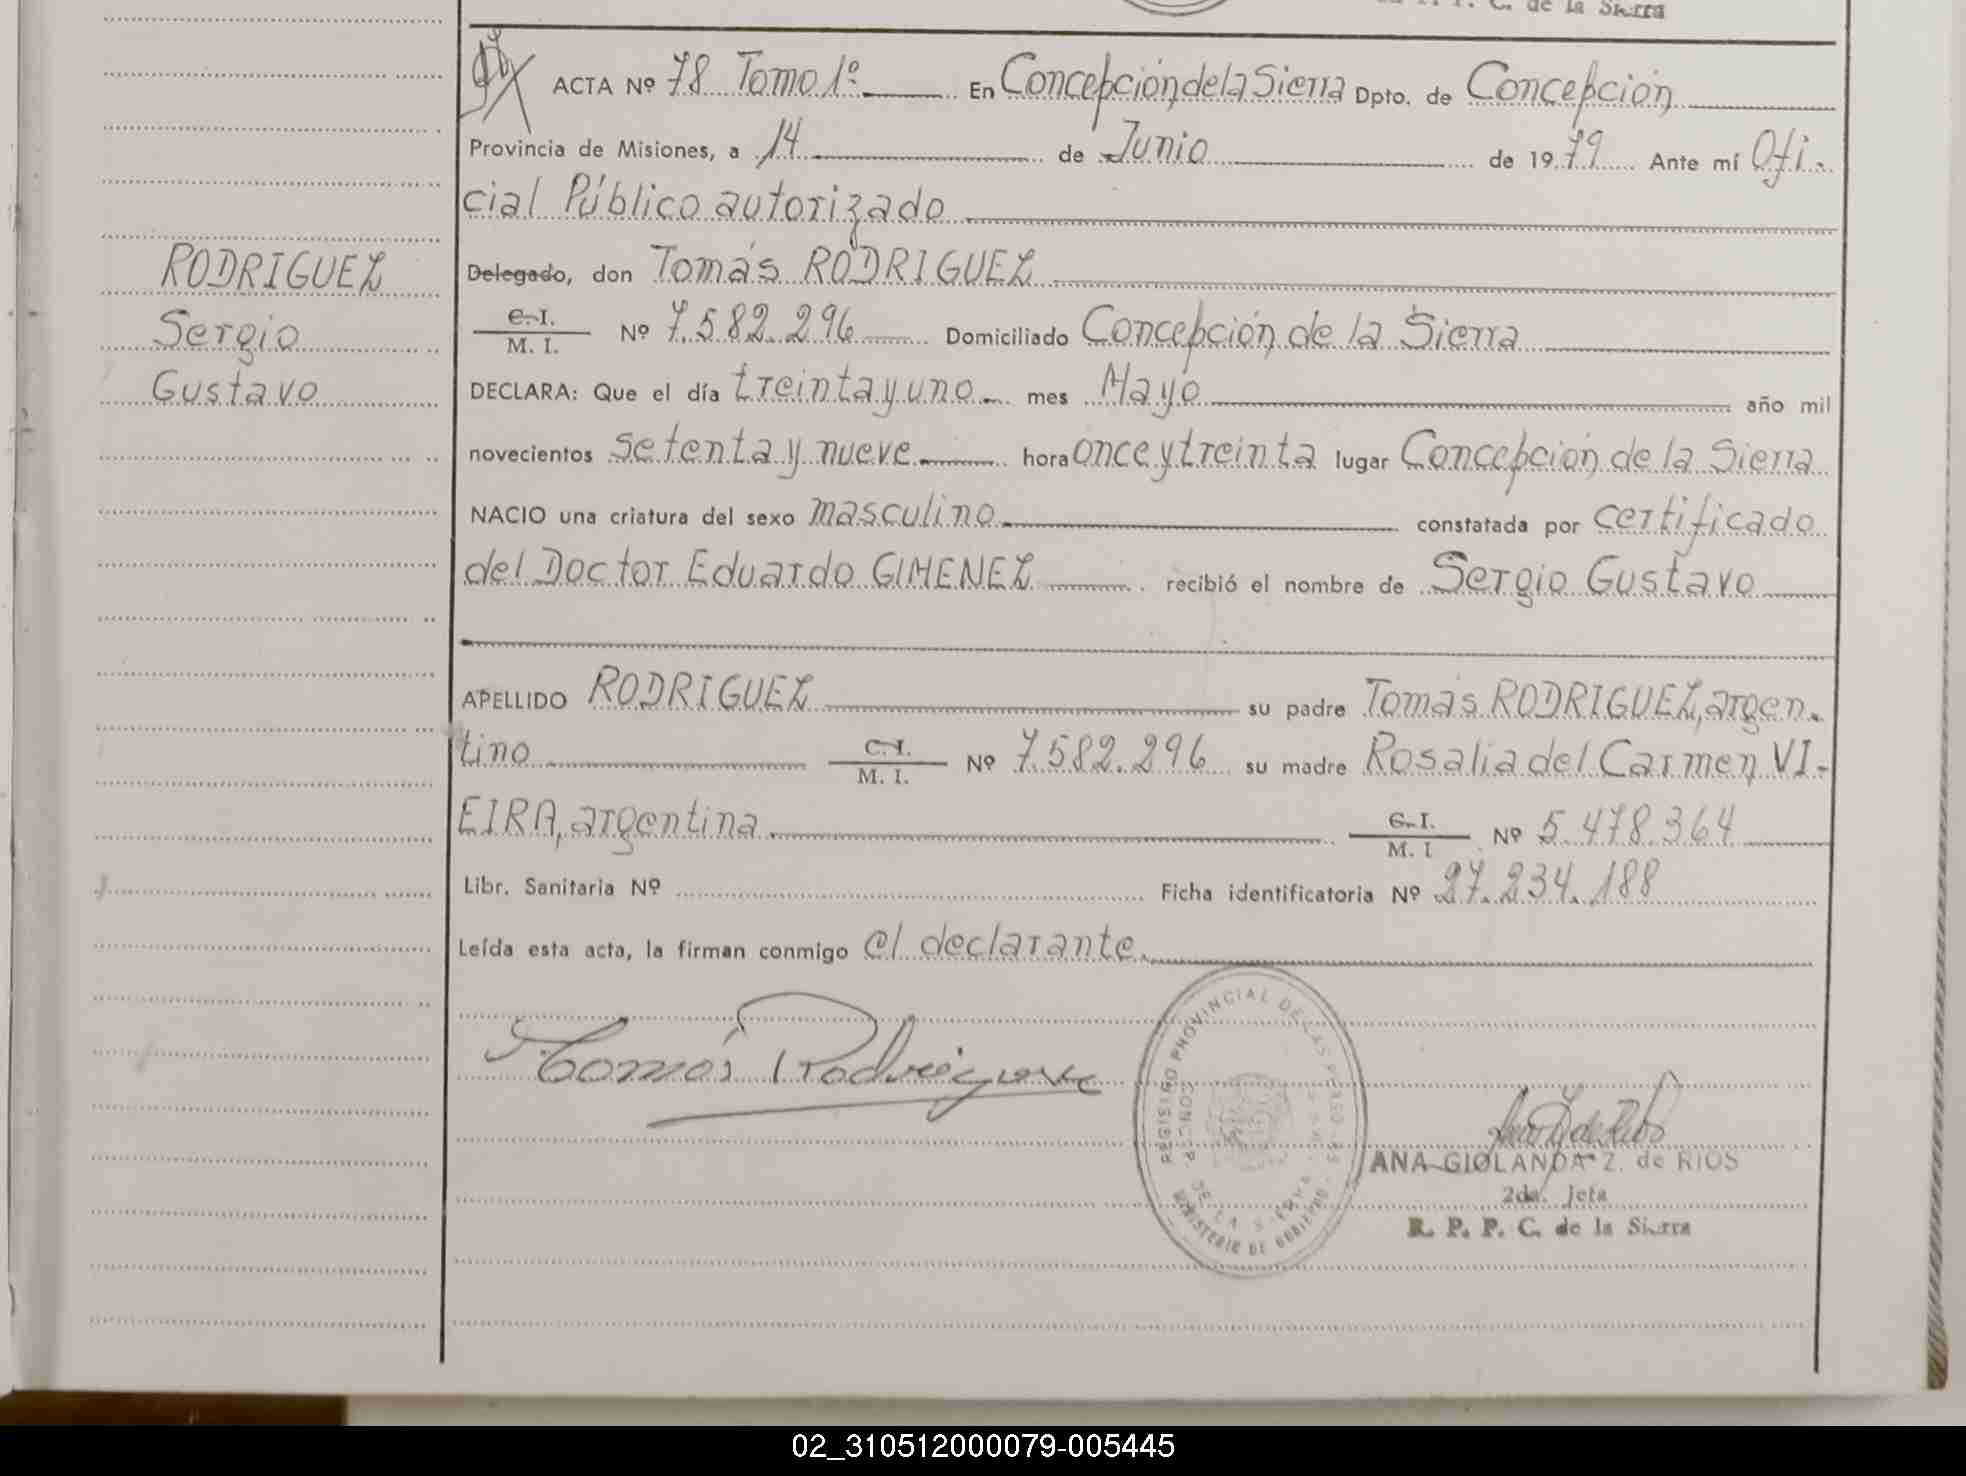 C. de la Sierra
ACTA Nº 78 Tomo 1º En Concepción de la Sierra Dpto. de Concepción
Provincia de Misiones, a 14 de Junio de 1979 Ante mí Ofi-
cial Público autorizado
Delegado, don Tomás RODRIGUEZ
RODRIGUEZ
Sergio
Gustavo
C. I.
M. I. Nº 7.582.296 Domiciliado Concepción de la Sierra
DECLARA: Que el día treinta y uno mes Mayo año mil
novecientos setenta y nueve hora once y treinta lugar Concepción de la Sierra
NACIO una criatura del sexo masculino constatada por certificado
del Doctor Eduardo GIMENEZ recibió el nombre de Sergio Gustavo
APELLIDO RODRIGUEZ su padre Tomás RODRIGUEZ, argen-
tino C. I. M. I. Nº 7.582.296 su madre Rosalia del Carmen VI-
EIRA, argentina. C. I. M. I Nº 5.478.364
Libr. Sanitaria Nº Ficha identificatoria Nº 27.234.188
Leída esta acta, la firman conmigo el declarante.
Tomás Rodriguez
REGISTRO PROVINCIAL DE LAS PERSONAS
CONCEP. DE LA SIERRA
MINISTERIO DE GOBIERNO
ANA GIOLANDA Z. de RIOS
2da. Jefa
R. P. P. C. de la Sierra
02_310512000079-005445